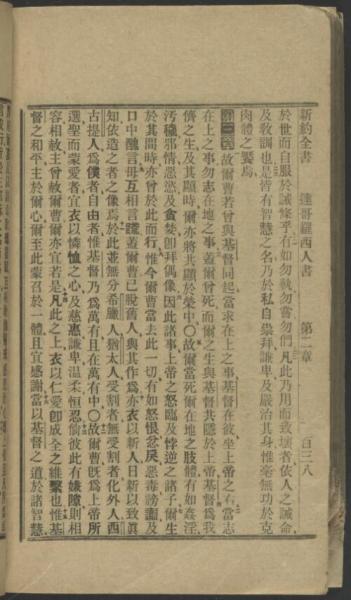 新約全書 達哥羅西人書 第二章 百三八
於世而自服於誡條乎有如勿執勿嘗勿們凡此乃用而致壞者依人之誡命
及教訓也是皆有智慧之名乃於私自崇拜謙卑及嚴治其身惟毫無功於克
肉體之饜焉
故爾曹若曾與基督同起當求在上之事基督在彼坐上帝之右當志
在上之事勿志在地之事蓋爾曹曾死而爾之生與基督共隱於上帝基督爲我
儕之生及其顯時爾亦將共顯於榮中〇故爾當死爾在地之肢體有如姦淫
汚穢邪情惡慾及貪婪卽拜偶像因此諸事上帝之怒臨及悖逆之諸子爾生
於其間時亦曾於此而行惟今爾曹當去此一切有如怒恨忿戾惡毒謗讟及
口中醜言毋互相言謊蓋爾曹已脫舊人與其作爲亦衣以新人日新以致眞
知依造之者之像焉於此並無分希臘人猶太人受割者無受割者化外人西
古提人爲僕者自由者惟基督乃爲萬有且在萬有中〇故爾曹旣爲上帝所
選聖而蒙愛者宜衣以憐恤之心及慈惠謙卑溫柔恒忍倘彼此有嫌隙則相
容相赦主曾赦爾曹爾亦宜若是凡此之上衣以仁愛卽成全之維繫也惟基
督之和平主於爾心爾至此蒙召於一體且宜感謝當以基督之道於諸智慧